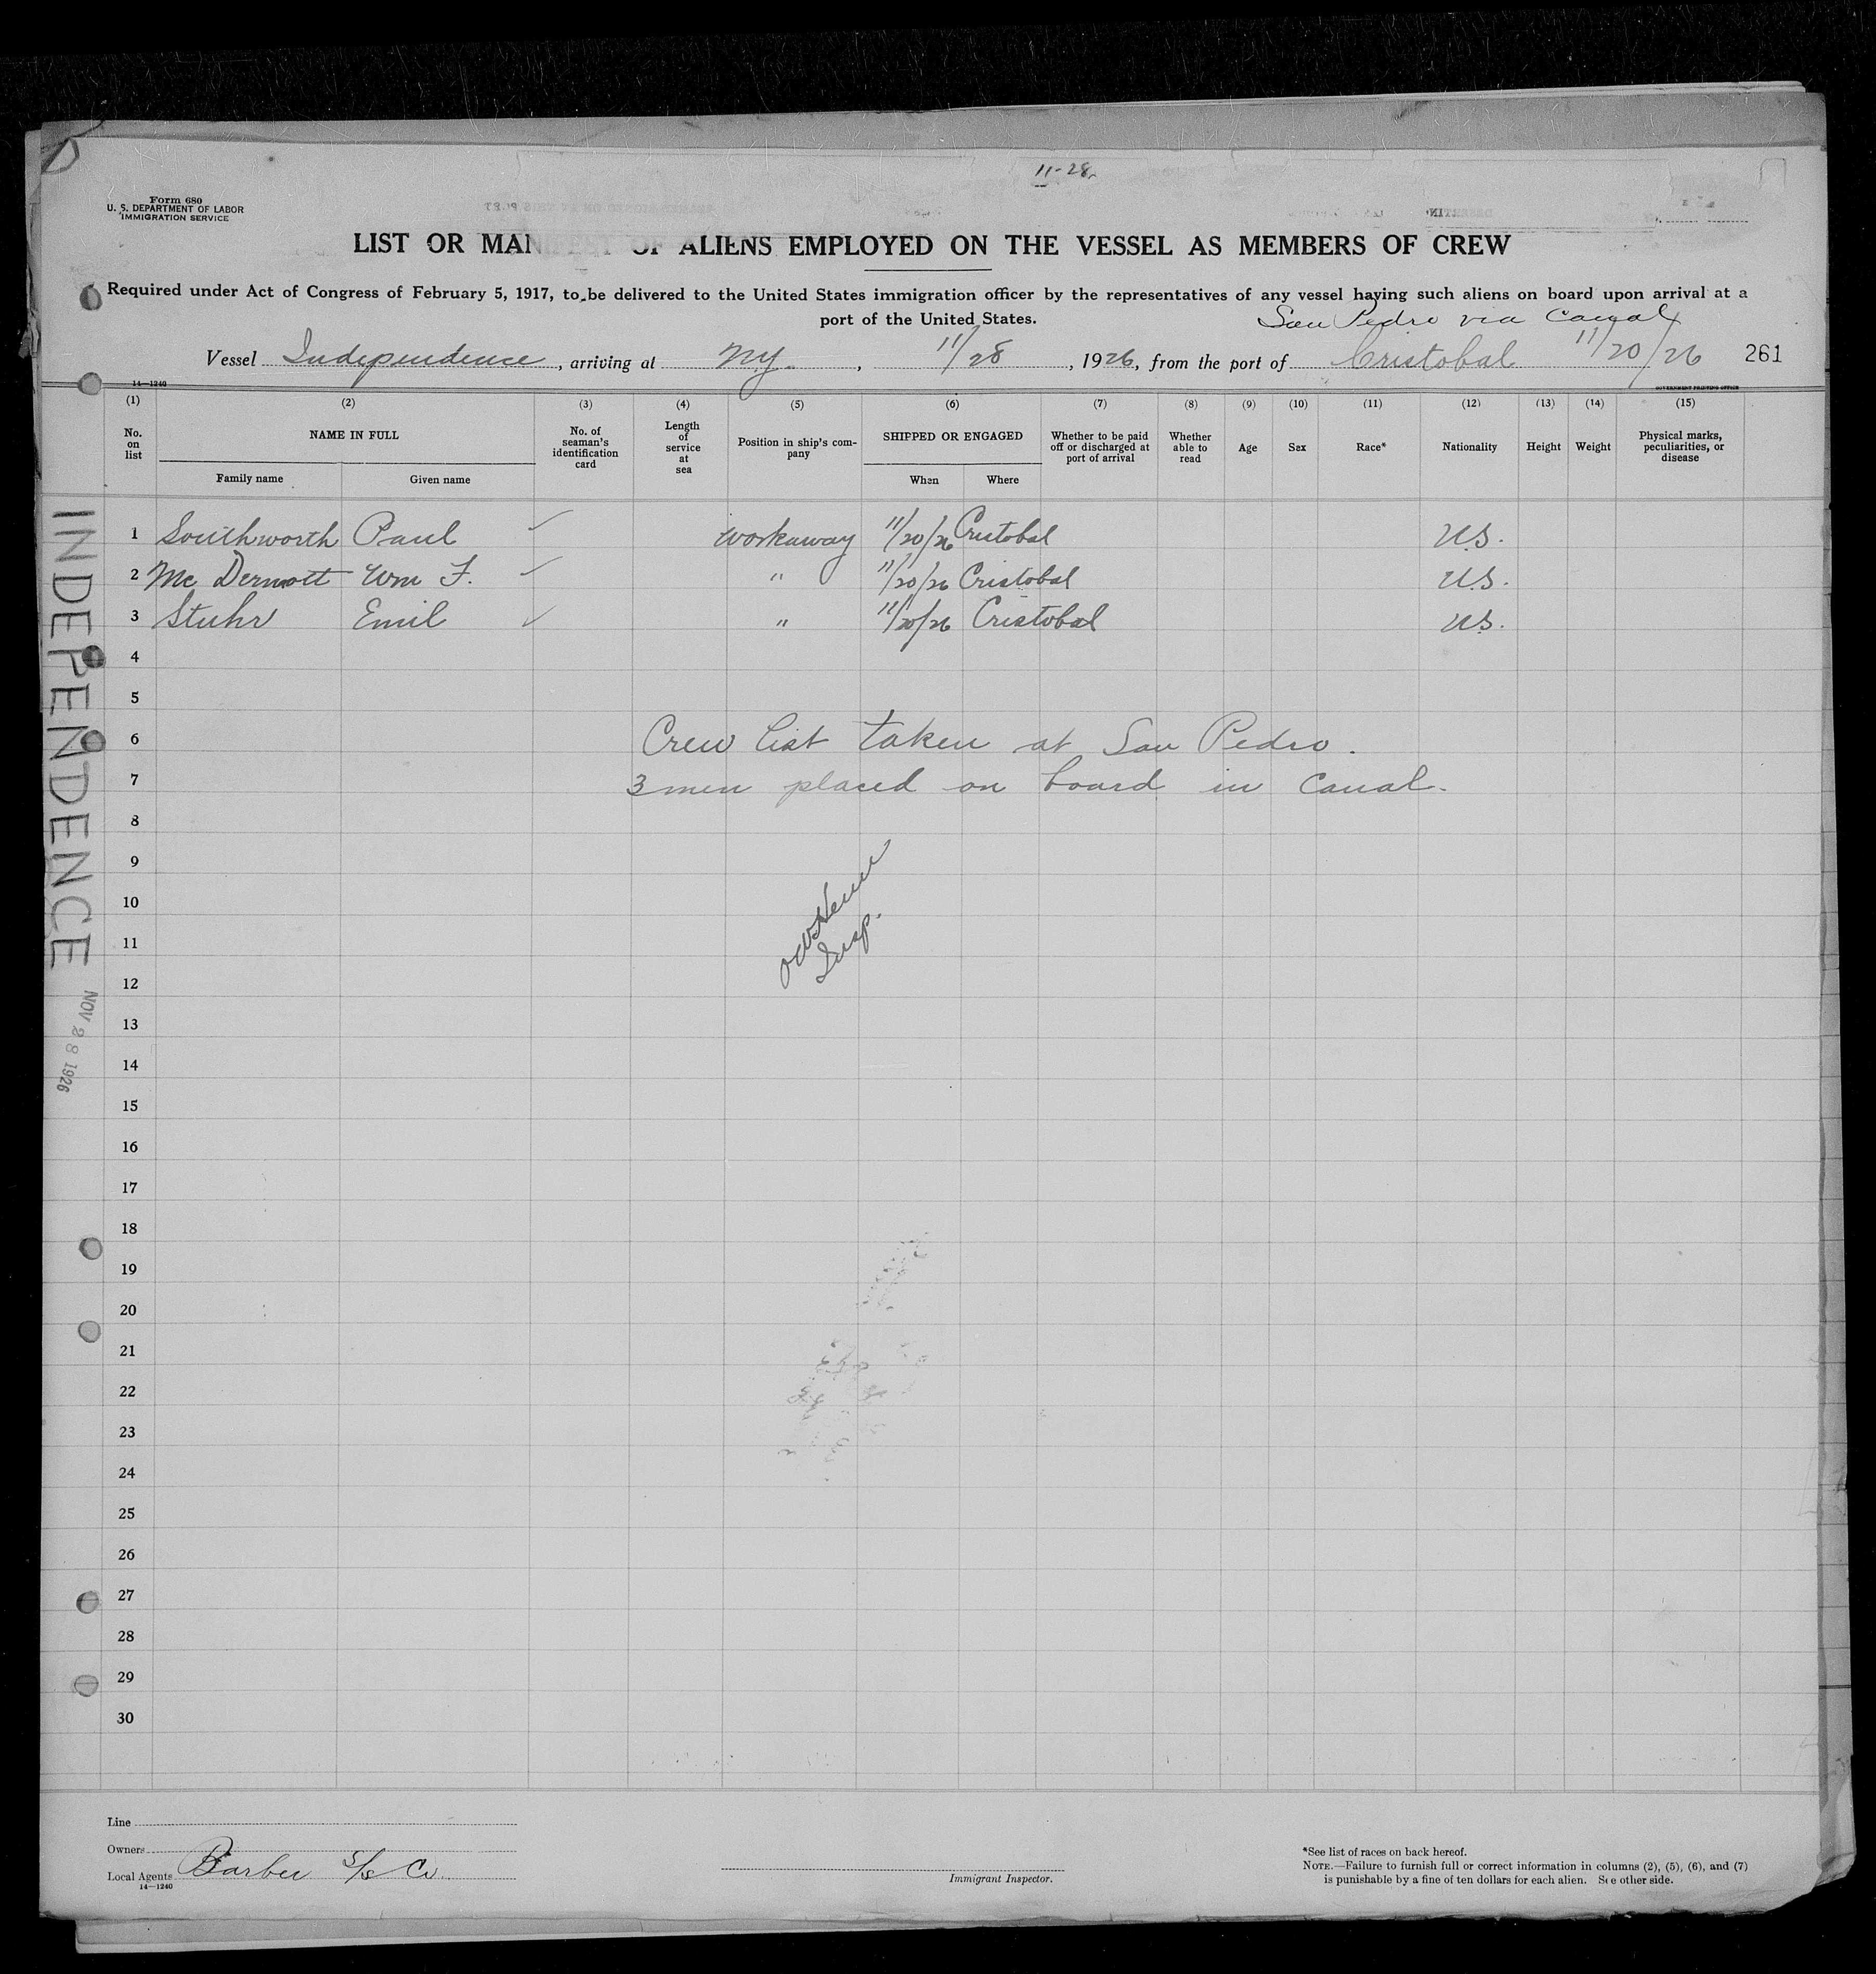 11-28
Form 680
U. S. DEPARTMENT OF LABOR
IMMIGRATION SERVICE
LIST OR MANIFEST OF ALIENS EMPLOYED ON THE VESSEL AS MEMBERS OF CREW
Required under Act of Congress of February 5, 1917, to be delivered to the United States immigration officer by the representatives of any vessel having such aliens on board upon arrival at a
port of the United States.
San Pedro via Canal
Vessel Independence, arriving at N.Y., 11/28, 1926, from the port of Cristobal 11/20/26 261
14—1240
GOVERNMENT PRINTING OFFICE
(1) (2) (3) (4) (5) (6) (7) (8) (9) (10) (11) (12) (13) (14) (15)
No. on list NAME IN FULL Family name Given name No. of seaman's identification card Length of service at sea Position in ship's company SHIPPED OR ENGAGED When Where Whether to be paid off or discharged at port of arrival Whether able to read Age Sex Race* Nationality Height Weight Physical marks, peculiarities, or disease
1 Southworth Paul ✓ workaway 11/20/26 Cristobal U.S.
2 Mc Dermott Wm F. ✓ " 11/20/26 Cristobal U.S.
3 Stuhr Emil ✓ " 11/20/26 Cristobal U.S.
4
5
6 Crew list taken at San Pedro.
7 3 men placed on board in Canal.
8
9
10
11
12
13
14
15
16
17
18
19
20
21
22
23
24
25
26
27
28
29
30
Insp.
INDEPENDENCE
NOV 28 1926
Line
Owners
Local Agents Barber S/S Co.
14—1240
Immigrant Inspector.
*See list of races on back hereof.
NOTE.—Failure to furnish full or correct information in columns (2), (5), (6), and (7)
is punishable by a fine of ten dollars for each alien. See other side.